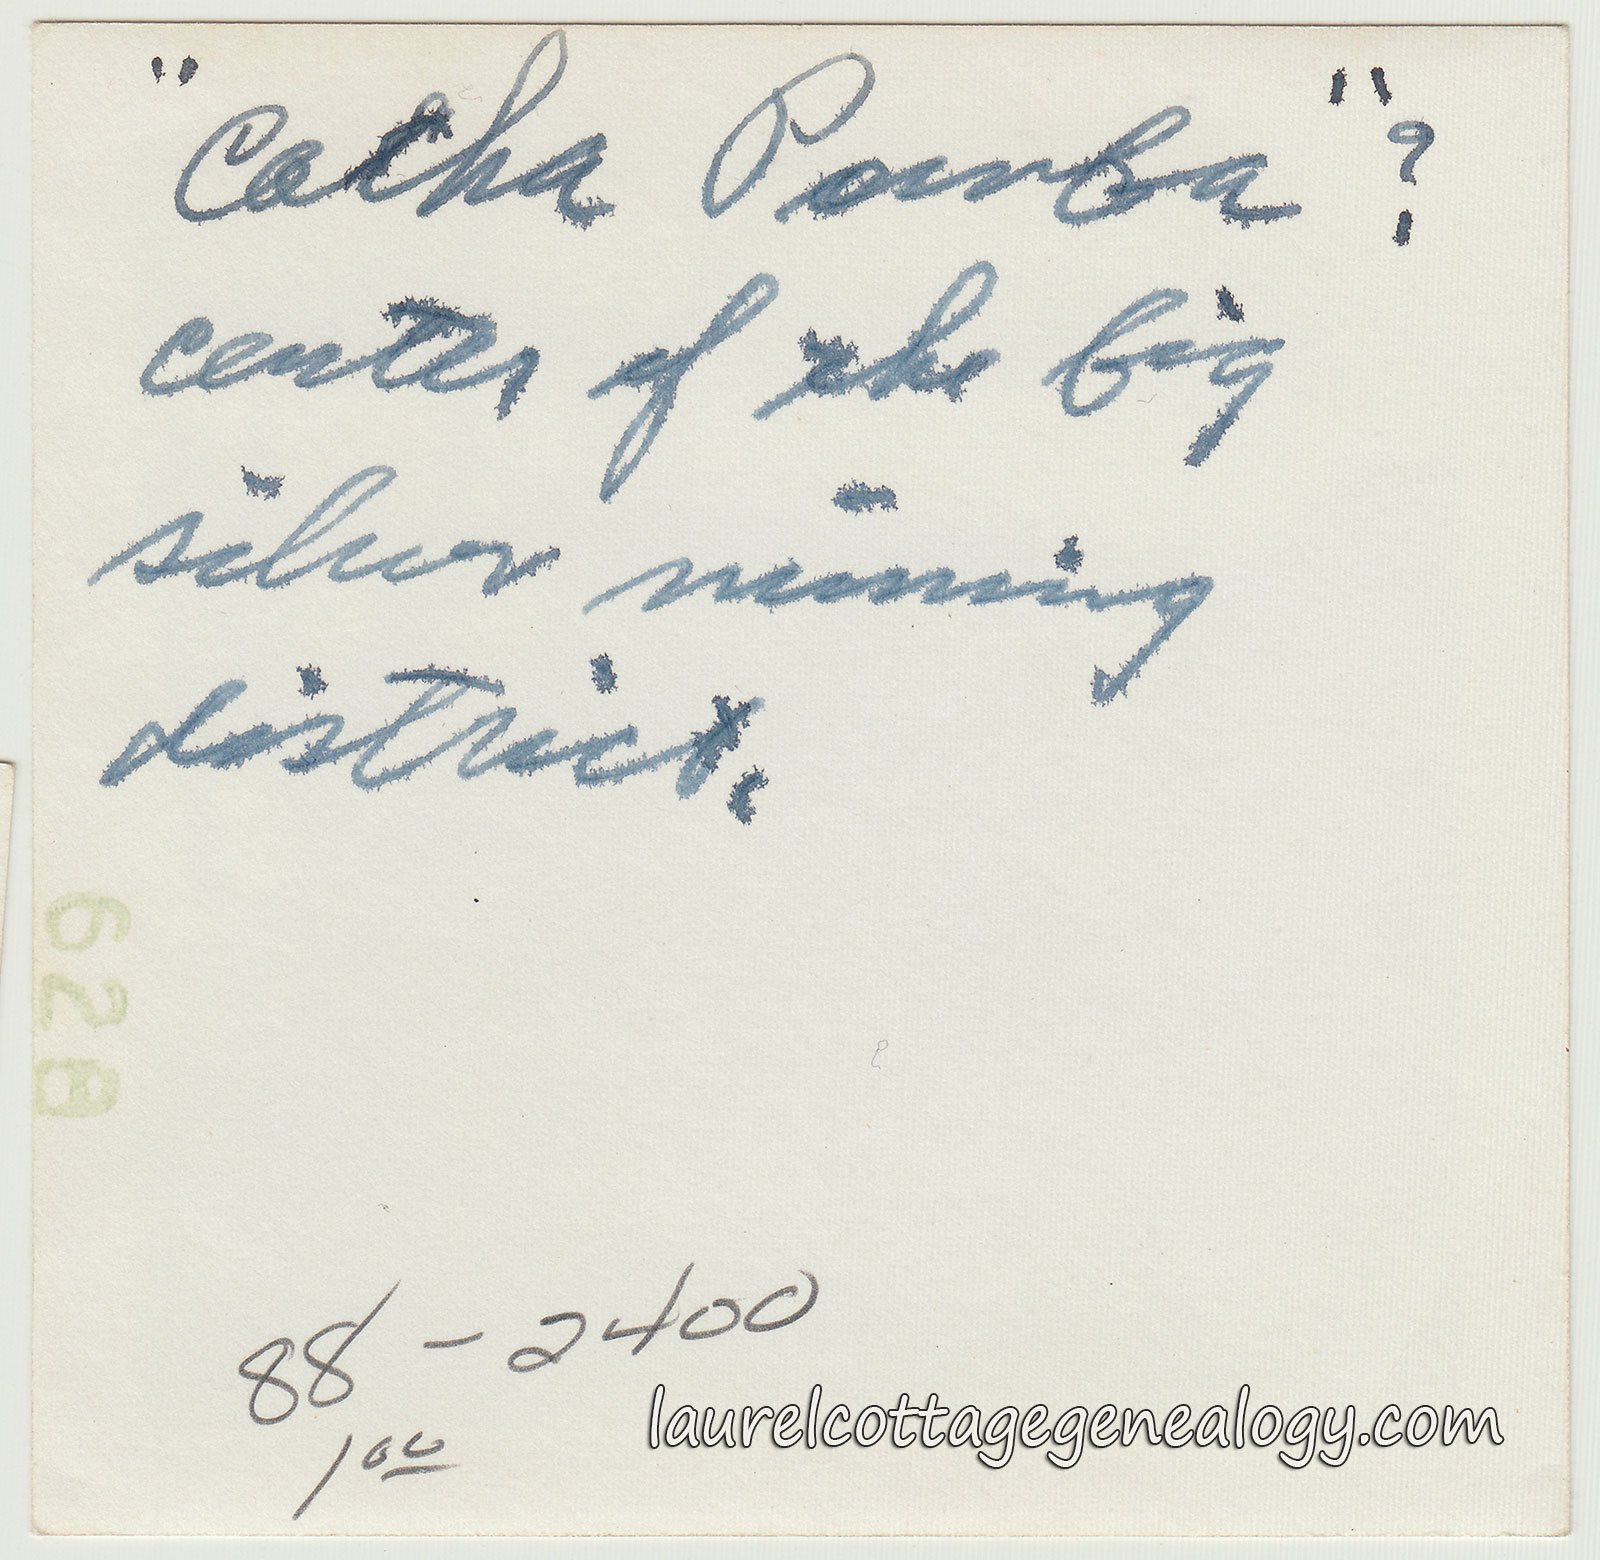 "Cotha Pomba"?
center of the big
silver mining
district.
88-2400
1.00
laurelcottagegenealogy.com